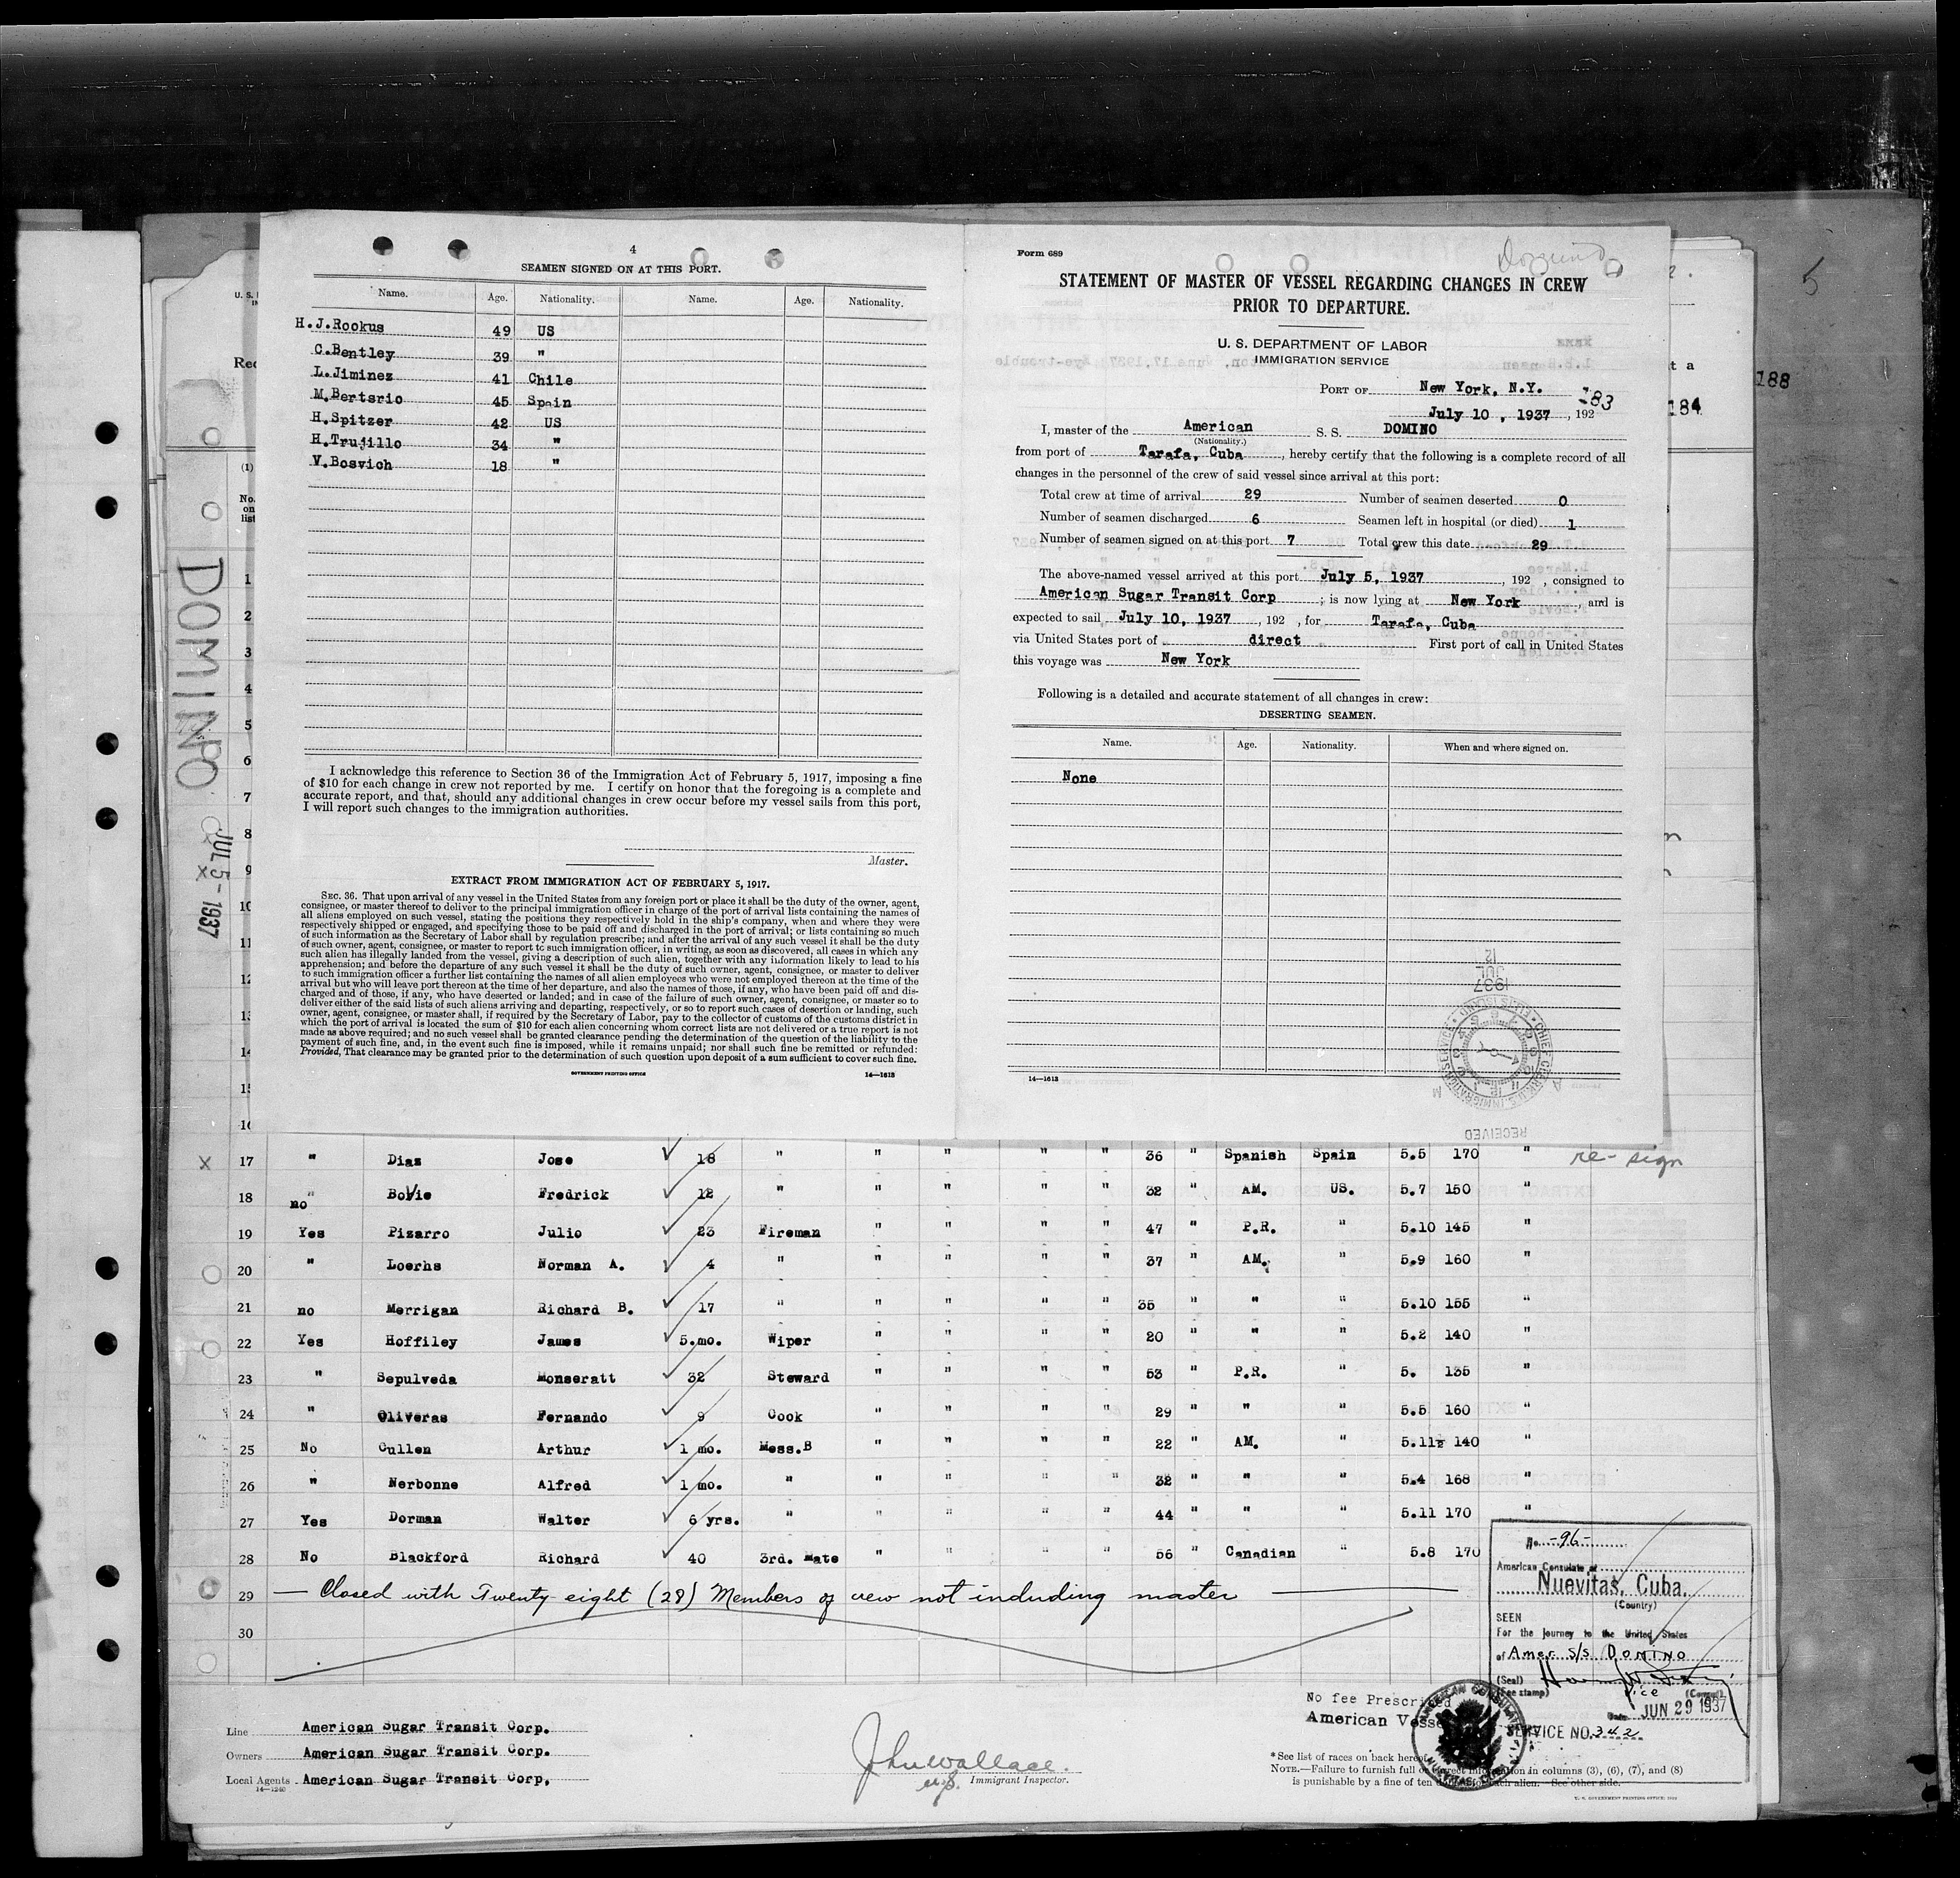 4
SEAMEN SIGNED ON AT THIS PORT.
Name. Age. Nationality. Name. Age. Nationality.
H.J.Rookus 49 US
C.Bentley 39 "
L.Jiminez 41 Chile
M.Bertsrio 45 Spain
H.Spitzer 42 US
H.Trujillo 34 "
V.Bosvich 18 "
I acknowledge this reference to Section 36 of the Immigration Act of February 5, 1917, imposing a fine
of $10 for each change in crew not reported by me. I certify on honor that the foregoing is a complete and
accurate report, and that, should any additional changes in crew occur before my vessel sails from this port,
I will report such changes to the immigration authorities.
Master.
EXTRACT FROM IMMIGRATION ACT OF FEBRUARY 5, 1917.
SEC. 36. That upon arrival of any vessel in the United States from any foreign port or place it shall be the duty of the owner, agent,
consignee, or master thereof to deliver to the principal immigration officer in charge of the port of arrival lists containing the names of
all aliens employed on such vessel, stating the positions they respectively hold in the ship's company, when and where they were
respectively shipped or engaged, and specifying those to be paid off and discharged in the port of arrival; or lists containing so much
of such information as the Secretary of Labor shall by regulation prescribe; and after the arrival of any such vessel it shall be the duty
of such owner, agent, consignee, or master to report to such immigration officer, in writing, as soon as discovered, all cases in which any
such alien has illegally landed from the vessel, giving a description of such alien, together with any information likely to lead to his
apprehension; and before the departure of any such vessel it shall be the duty of such owner, agent, consignee, or master to deliver
to such immigration officer a further list containing the names of all alien employees who were not employed thereon at the time of the
arrival but who will leave port thereon at the time of her departure, and also the names of those, if any, who have been paid off and dis-
charged and of those, if any, who have deserted or landed; and in case of the failure of such owner, agent, consignee, or master so to
deliver either of the said lists of such aliens arriving and departing, respectively, or so to report such cases of desertion or landing, such
owner, agent, consignee, or master shall, if required by the Secretary of Labor, pay to the collector of customs of the customs district in
which the port of arrival is located the sum of $10 for each alien concerning whom correct lists are not delivered or a true report is not
made as above required; and no such vessel shall be granted clearance pending the determination of the question of the liability to the
payment of such fine, and, in the event such fine is imposed, while it remains unpaid; nor shall such fine be remitted or refunded:
Provided, That clearance may be granted prior to the determination of such question upon deposit of a sum sufficient to cover such fine.
GOVERNMENT PRINTING OFFICE 14—1613
Form 689
Domino
STATEMENT OF MASTER OF VESSEL REGARDING CHANGES IN CREW
PRIOR TO DEPARTURE.
U. S. DEPARTMENT OF LABOR
IMMIGRATION SERVICE
PORT OF New York, N.Y.
July 10, 1937, 192
I, master of the American S. S. DOMINO
(Nationality.)
from port of Tarafa, Cuba, hereby certify that the following is a complete record of all
changes in the personnel of the crew of said vessel since arrival at this port:
Total crew at time of arrival 29 Number of seamen deserted 0
Number of seamen discharged 6 Seamen left in hospital (or died) 1
Number of seamen signed on at this port 7 Total crew this date 29
The above-named vessel arrived at this port July 5, 1937, 192 , consigned to
American Sugar Transit Corp ; is now lying at New York, and is
expected to sail July 10, 1937, 192 , for Tarafa, Cuba
via United States port of direct First port of call in United States
this voyage was New York
Following is a detailed and accurate statement of all changes in crew:
DESERTING SEAMEN.
Name. Age. Nationality. When and where signed on.
None
14—1613
1937
JUL
12
RECEIVED
5
188
184
DOMINO
JUL 5 - 1937
(1)
No.
on
list
1
2
3
4
5
6
7
8
9
10
11
12
13
14
15
16
x 17 " Diaz Jose 18 " " " " " 36 " Spanish Spain 5.5 170 " re-sign
18 " no Bovie Fredrick 12 " " " " " 32 " AM. US. 5.7 150 "
19 Yes Pizarro Julio 23 Fireman " " " " 47 " P.R. " 5.10 145 "
20 " Loerhs Norman A. 4 " " " " " 37 " AM. " 5.9 160 "
21 no Merrigan Richard B. 17 " " " " " 35 " " " 5.10 155 "
22 Yes Hoffiley James 5.mo. Wiper " " " " 20 " " " 5.2 140 "
23 " Sepulveda Monseratt 32 Steward " " " " 53 " P.R. " 5. 135 "
24 " Oliveras Fernando 9 Cook " " " " 29 " " " 5.5 160 "
25 No Cullen Arthur 1 mo. Mess.B " " " " 22 " AM. " 5.11½ 140 "
26 " Nerbonne Alfred 1 mo. " " " " " 32 " " " 5.4 168 "
27 Yes Dorman Walter 6 yrs. " " " " " 44 " " " 5.11 170 "
28 No Blackford Richard 40 3rd. Mate " " " " 56 " Canadian " 5.8 170
29 — Closed with Twenty eight (28) Members of crew not including master
30
No. -96-
American Consulate at
Nuevitas, Cuba.
(Country)
SEEN
For the journey to the United States
of Amer. S/S DOMINO
(Seal)
(Fee stamp) Vice (Consul)
Date JUN 29 1937
SERVICE NO. 342
No fee Prescribed
American Vessel
Line American Sugar Transit Corp.
Owners American Sugar Transit Corp.
Local Agents American Sugar Transit Corp.
14—1240
John Wallace
Immigrant Inspector.
*See list of races on back hereof
NOTE.—Failure to furnish full or correct information in columns (3), (6), (7), and (8)
is punishable by a fine of ten dollars for each alien. See other side.